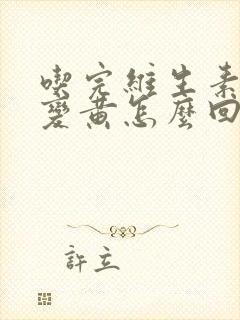 喫完維生素
變黃怎麼回
許立